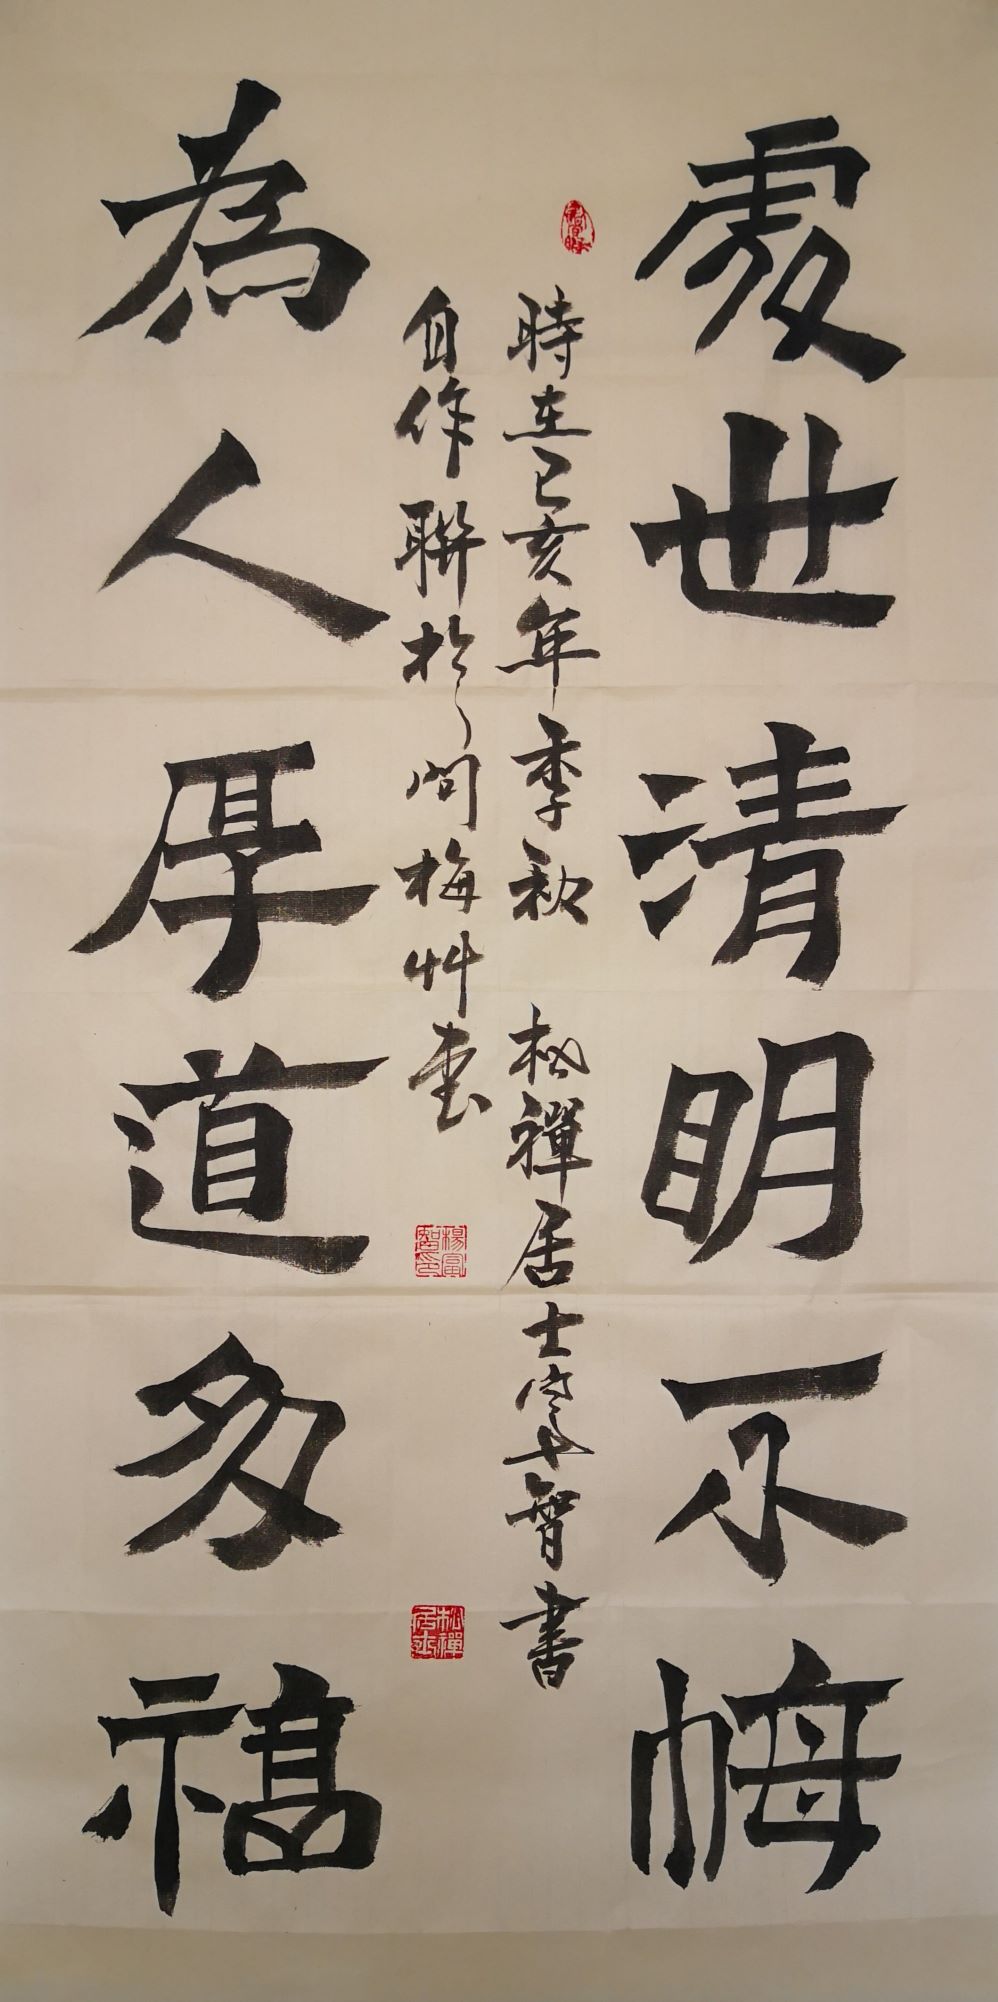 處世清明不悔
時在己亥年季秋 松禪居士 智書
自作聯於問梅艸堂
為人厚道多福
楊富智印
松禪居士